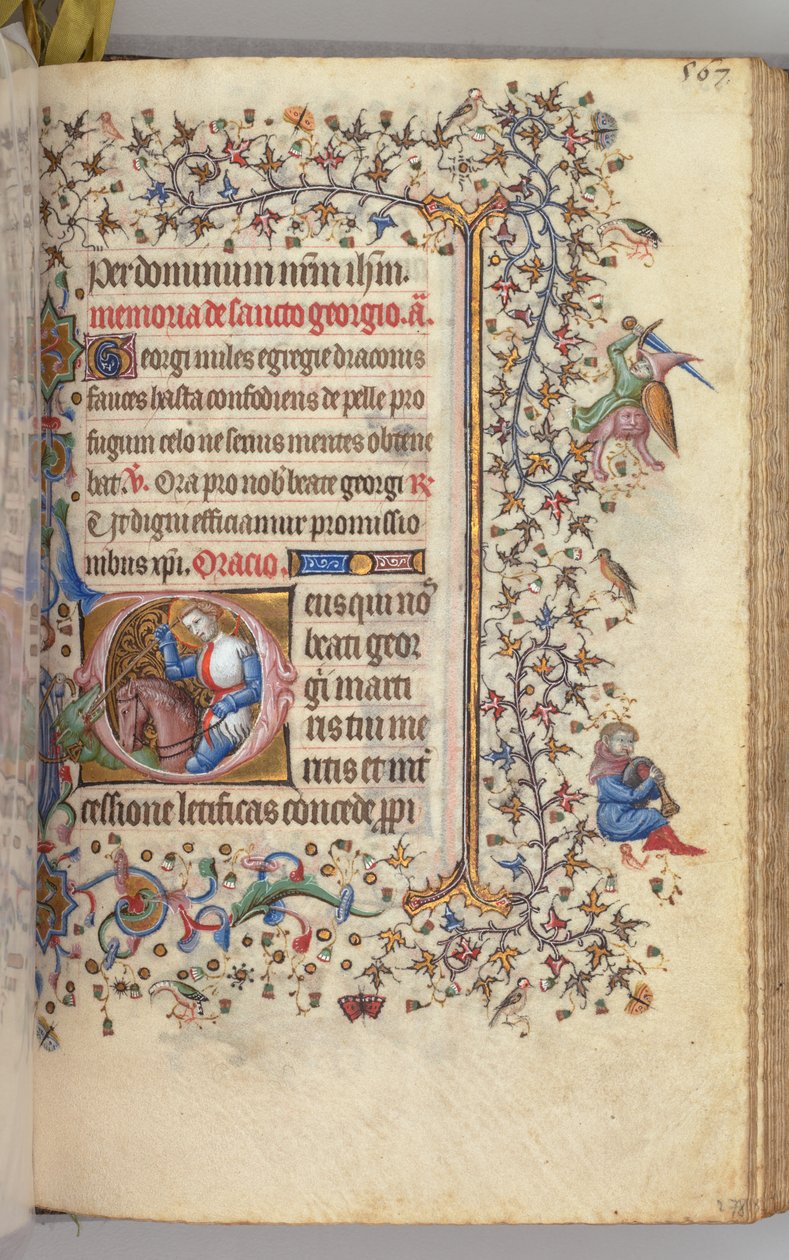 567.
Per dominum nr̄m ih̄m.
memoria de sancto georgio. ā.
Georgi miles egregie draconis
fauces hasta confodiens de pelle pro
fugum celo ne senus mentes obtene
bat. V. Ora pro nob̄ beate georgi R
Ut digni efficiamur promissio
nibus xp̄i. Oracio.
Deus qui nos
beati geor
gij marti
ris tui me
ritis et int̄
cessione letificas concede ꝓpi
278